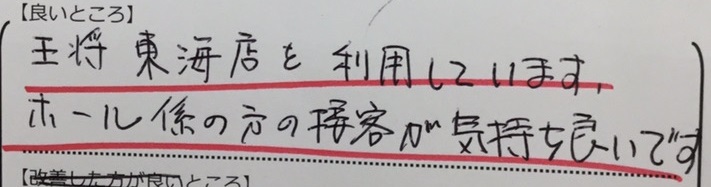 【良いところ】
王将 東海店を 利用しています.
ホール係の方の接客が気持ち良いです
【改善した方が良いところ】